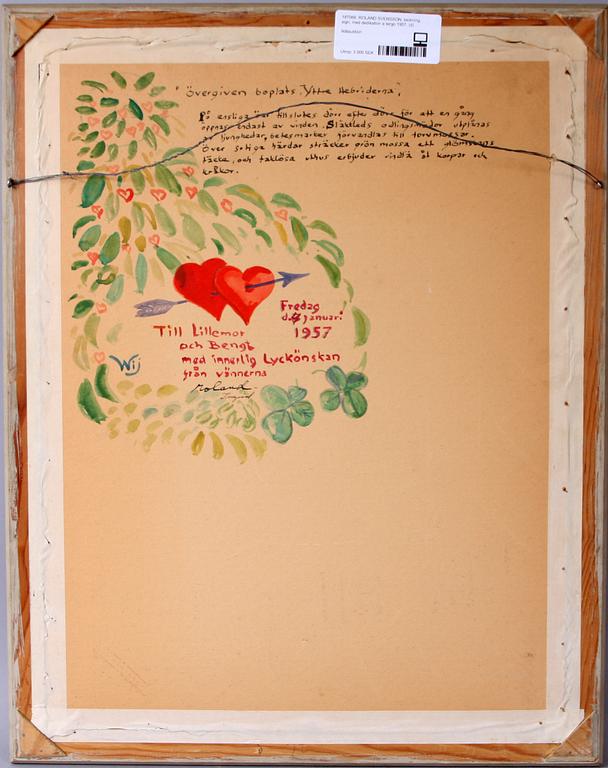 187068. ROLAND SVENSSON. teckning,
sign, med dedikation a tergo 1957. (d)
Utrop: 3 000 SEK
"Övergiven boplats, Yttre Hebriderna".
På ensliga öar tillslutes dörr efter dörr för att en gång
öppnas endast av vinden. Släktleds odlingsmödor utplånas
av ljunghedar, betesmarker förvandlas till torvmossar.
Över sotiga härdar sträcker grön mossa ett glömskans
täcke, och taklösa uthus erbjuder vindlä åt korpar och
kråkor.
Fredag
d. 4 januari
1957
Till Lillemor
och Bengt
med innerlig Lyckönskan
från vännerna
Wij
Roland